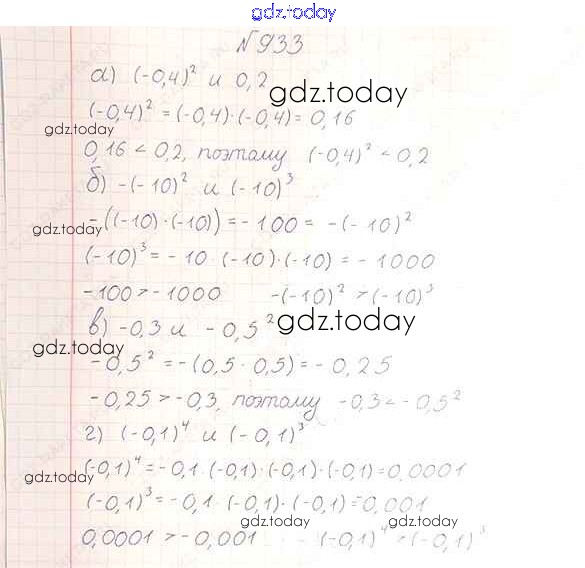 gdz.today
№933
а) (-0,4)² и 0,2
gdz.today
(-0,4)² = (-0,4)·(-0,4) = 0,16
gdz.today
0,16 < 0,2, поэтому (-0,4)² < 0,2
б) -(-10)² и (-10)³
-((-10)·(-10)) = -100 = -(-10)²
gdz.today
(-10)³ = -10·(-10)·(-10) = -1000
-100 > -1000 -(-10)² > (-10)³
в) -0,3 и -0,5²
gdz.today
gdz.today
-0,5² = -(0,5·0,5) = -0,25
-0,25 > -0,3, поэтому -0,3 < -0,5²
г) (-0,1)⁴ и (-0,1)³
(-0,1)⁴ = -0,1·(-0,1)·(-0,1)·(-0,1) = 0,0001
gdz.today
(-0,1)³ = -0,1·(-0,1)·(-0,1) = -0,001
gdz.today gdz.today
0,0001 > -0,001 (-0,1)⁴ > (-0,1)³